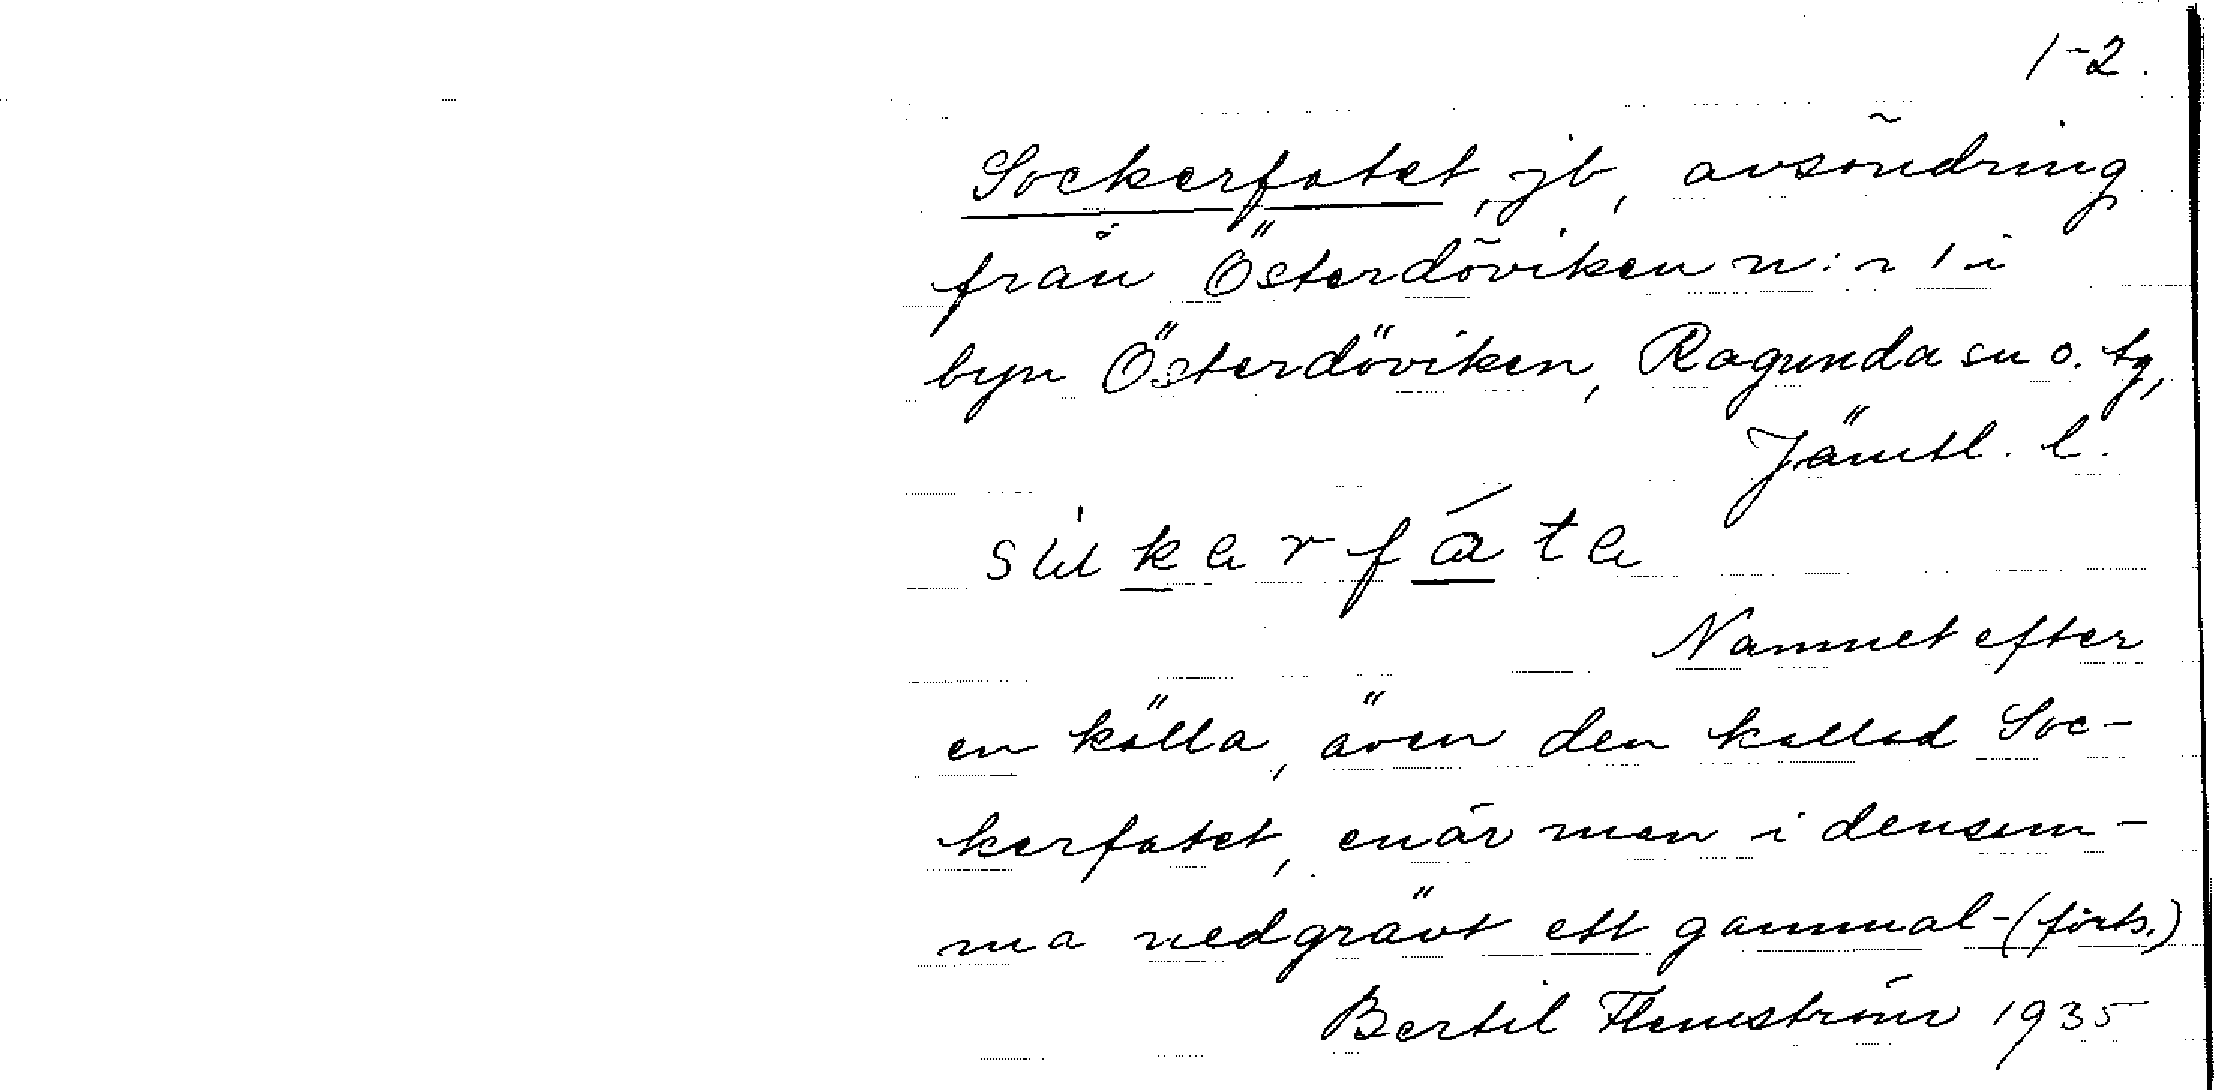 1-2.
Sockerfatet, jb, avsöndring
från Österdöviken n:r 1 i
byn Österdöviken, Ragunda sn o. tg,
Jämtl. l.
Namnet efter
en källa, även den kallad Soc-
kerfatet, enär man i densam-
ma nedgrävt ett gammal- (forts.)
Bertil Flemström 1935